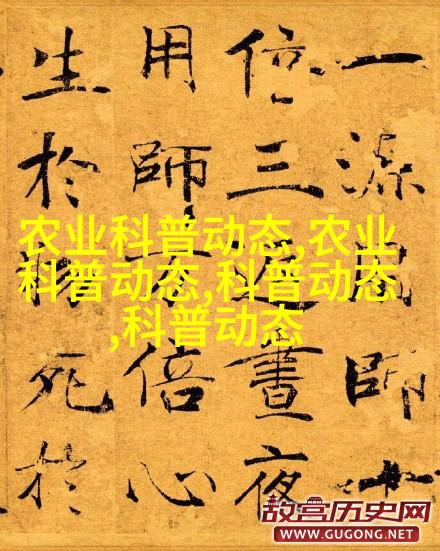 一源師十
倍三返晝夜
用師倍心
生於物死於
农业科普动态,农业
科普动态,科普动态
,科普动态
故宫历史网
WWW.GUGONG.NET